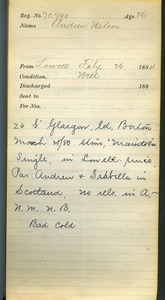 Reg. No. Age 26
Name Andrew Wilson
From Lowell Feb. 26 188
Condition, Well
Discharged 188
Sent to
For Nos.
26 b Glasgow, Ld. Boston
March /80 Stmr. "Manitoban"
Single, in Lowell since.
Par Andrew & Isabella in
Scotland, no rels. in A,-
N. M. N. B.
Bad Cold